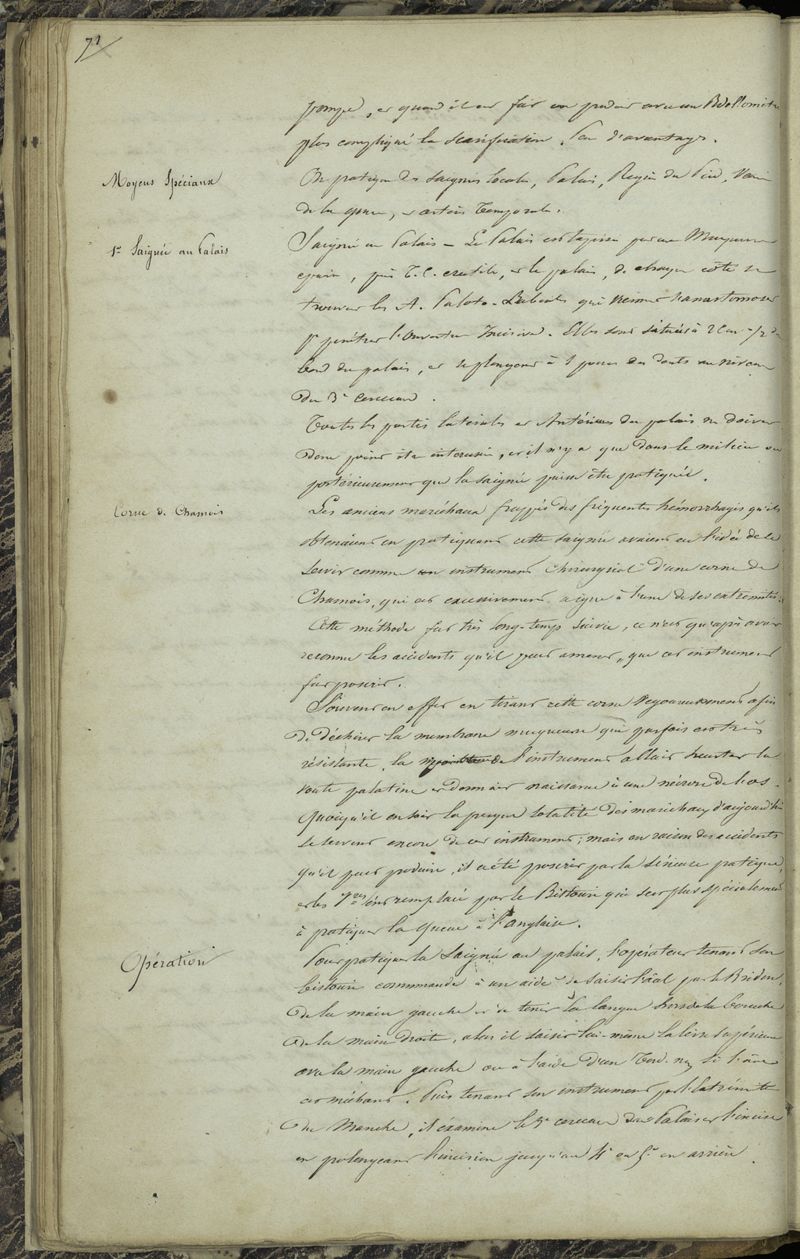 71
pompe, et quand il en fait un pareil avec un Bdellomètre
plus compliqué la scarification. Peu d'avantage.
Moyens Spéciaux
On pratique des saignées locales, Palais, Région du Pied, Veine
de la queue, et artère Temporale.
1re Saignée au Palais
Saignée au Palais – Le Palais est tapissé par une Muqueuse
épaisse, puis T. C. érectile, et le palais, de chaque côté se
trouvent les A. Palato-Labiales qui viennent s'anastomoser
pr pénétrer l'ouverture Incisive. Elles sont situées à 2 Cm 1/2 du
bord du palais, et se plongent à 1 pouce des dents au niveau
du 3e cerceau.
Toutes les parties latérales et Antérieures du palais ne doivent
donc point être intéressées, et il n'y a que dans le milieu ou
postérieurement que la saignée puisse être pratiquée.
Corne de Chamois
Les anciens maréchaux frappés des fréquentes hémorrhagies qu'ils
obtenaient en pratiquant cette saignée avaient eu l'idée de se
servir comme un instrument chirurgical d'une corne de
Chamois, qui est excessivement aigue à l'une de ses extrémités.
Cette méthode fut très long-temps suivie, ce n'est qu'après avoir
reconnu les accidents qu'il peut amener, que cet instrument
fut proscrit.
Souvent en effet en tirant cette corne vigoureusement afin
de déchirer la membrane muqueuse qui parfois est très
résistante, la pointe de l'instrument allait heurter la
voute palatine et donnait naissance à une nécrose de l'os.
Quoiqu'il en soit la presque totalité des maréchaux d'aujourd'hui
se servent encore de cet instrument; mais en raison des accidents
qu'il peut produire, il a été proscrit par la science pratique,
et les Vres l'ont remplacé par le Bistouri qui sert plus spécialement
à pratiquer la queue à l'anglaise.
Opération
Pour pratiquer la Saignée au palais, l'opérateur tenant son
bistouri commande à un aide de saisir l'âal par le Bridon,
de la main gauche et de tenir la langue hors de la bouche
de la main droite, alors il saisit lui-même la lèvre supérieure
avec la main gauche ou à l'aide d'un Tord-nez si l'âne
est méchant. Puis tenant son instrument par l'extrémité
du Manche, il examine le 3e cerceau du Palais et l'incise
en prolongeant l'incision jusqu'au 4e ou 5e en arrière